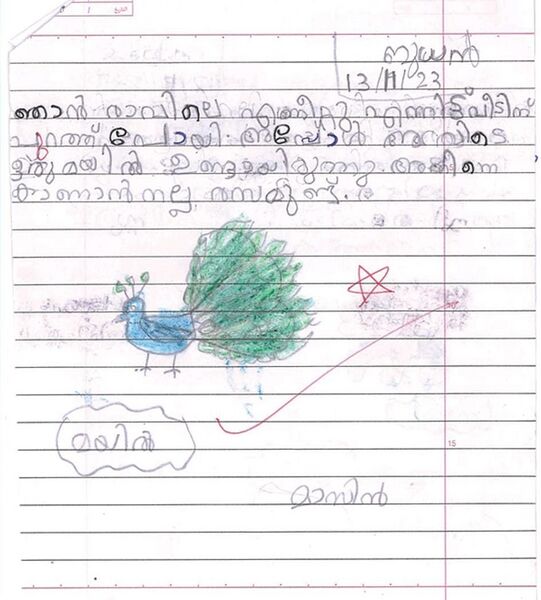 ബുധൻ
13/11/23
ഞാൻ രാവിലെ എണീറ്റു എന്നിട്ട് വീടിന്
പുറത്ത് പോയി. അപ്പോൾ അവിടെ
ഒരു മയിൽ ഉണ്ടായിരുന്നു. അതിനെ
കാണാൻ നല്ല രസമുണ്ട്.
മയിൽ
15
മാസിൻ